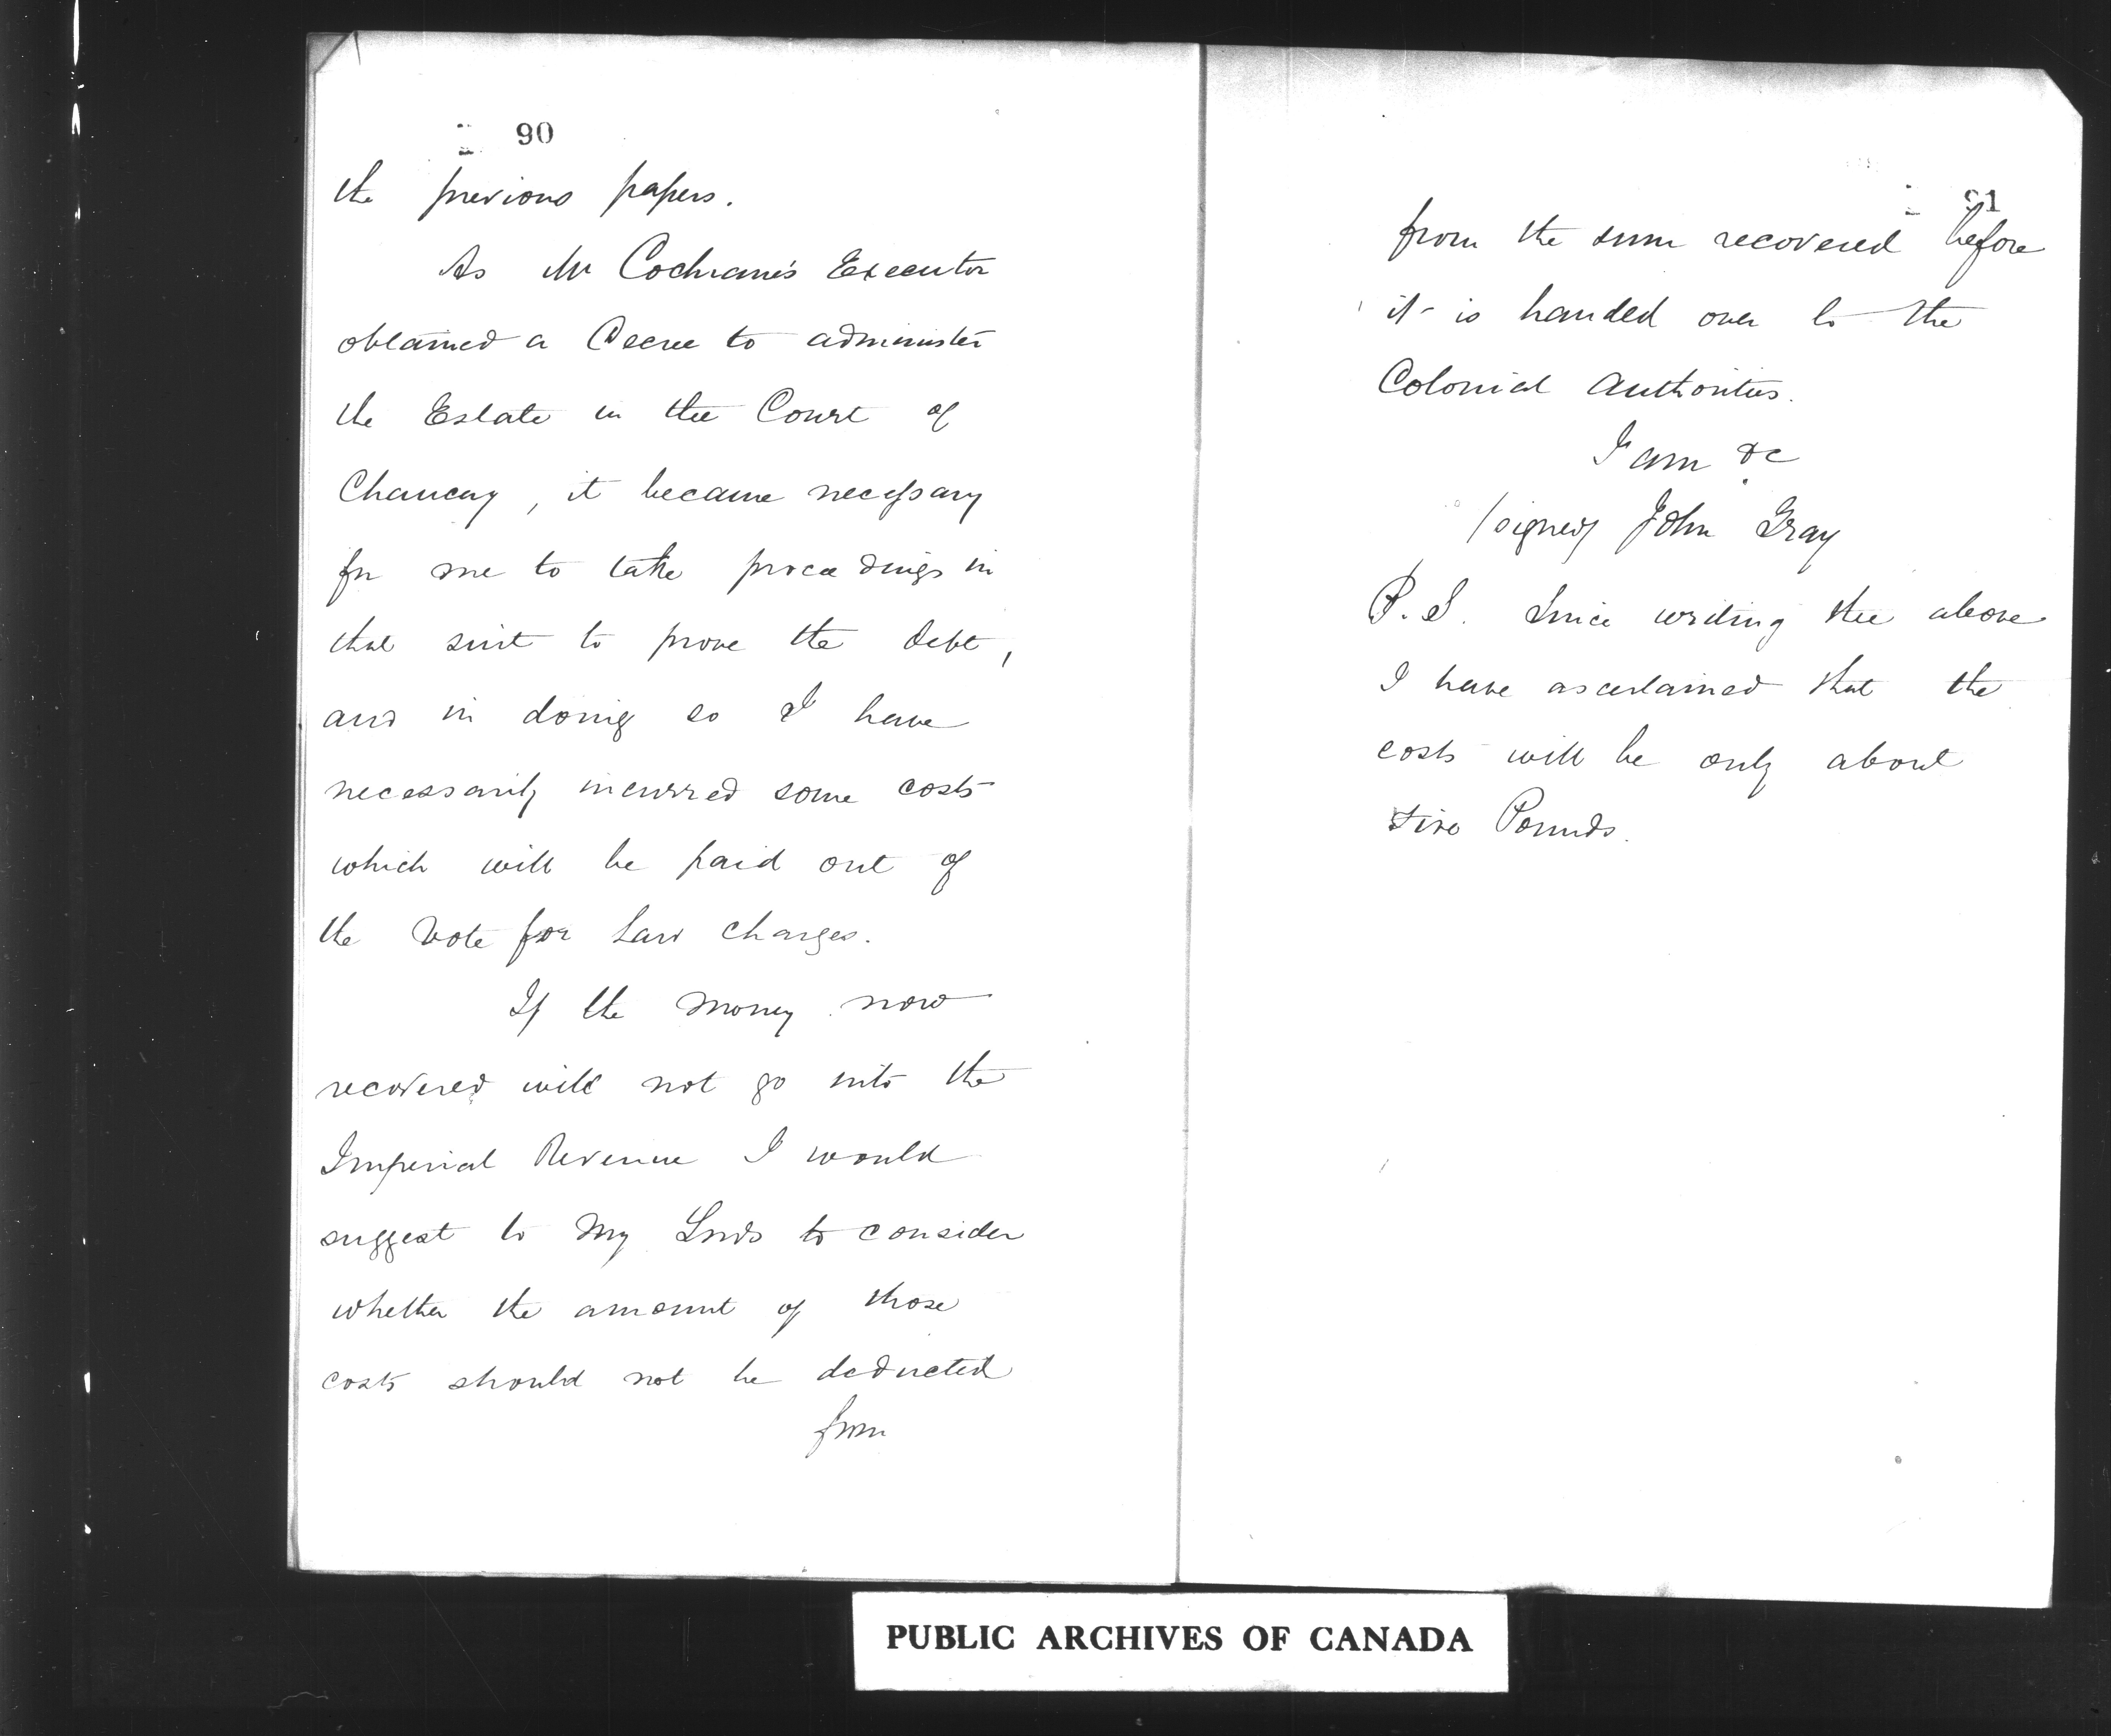 90
the previous papers.
As Mr Cochrane's Executor
obtained a Decree to administer
the Estate in the Court of
Chancery, it became necessary
for me to take proceedings in
that suit to prove the debt,
and in doing so I have
necessarily incurred some costs
which will be paid out of
the Vote for Law Charges.
If the money now
recovered will not go into the
Imperial Revenue I would
suggest to My Lords to consider
whether the amount of those
costs should not be deducted
from
91
from the sum recovered before
it is handed over to the
Colonial Authorities.
I am &c
/signed/ John Gray
P.S. Since writing the above
I have ascertained that the
costs will be only about
Five Pounds.
PUBLIC ARCHIVES OF CANADA